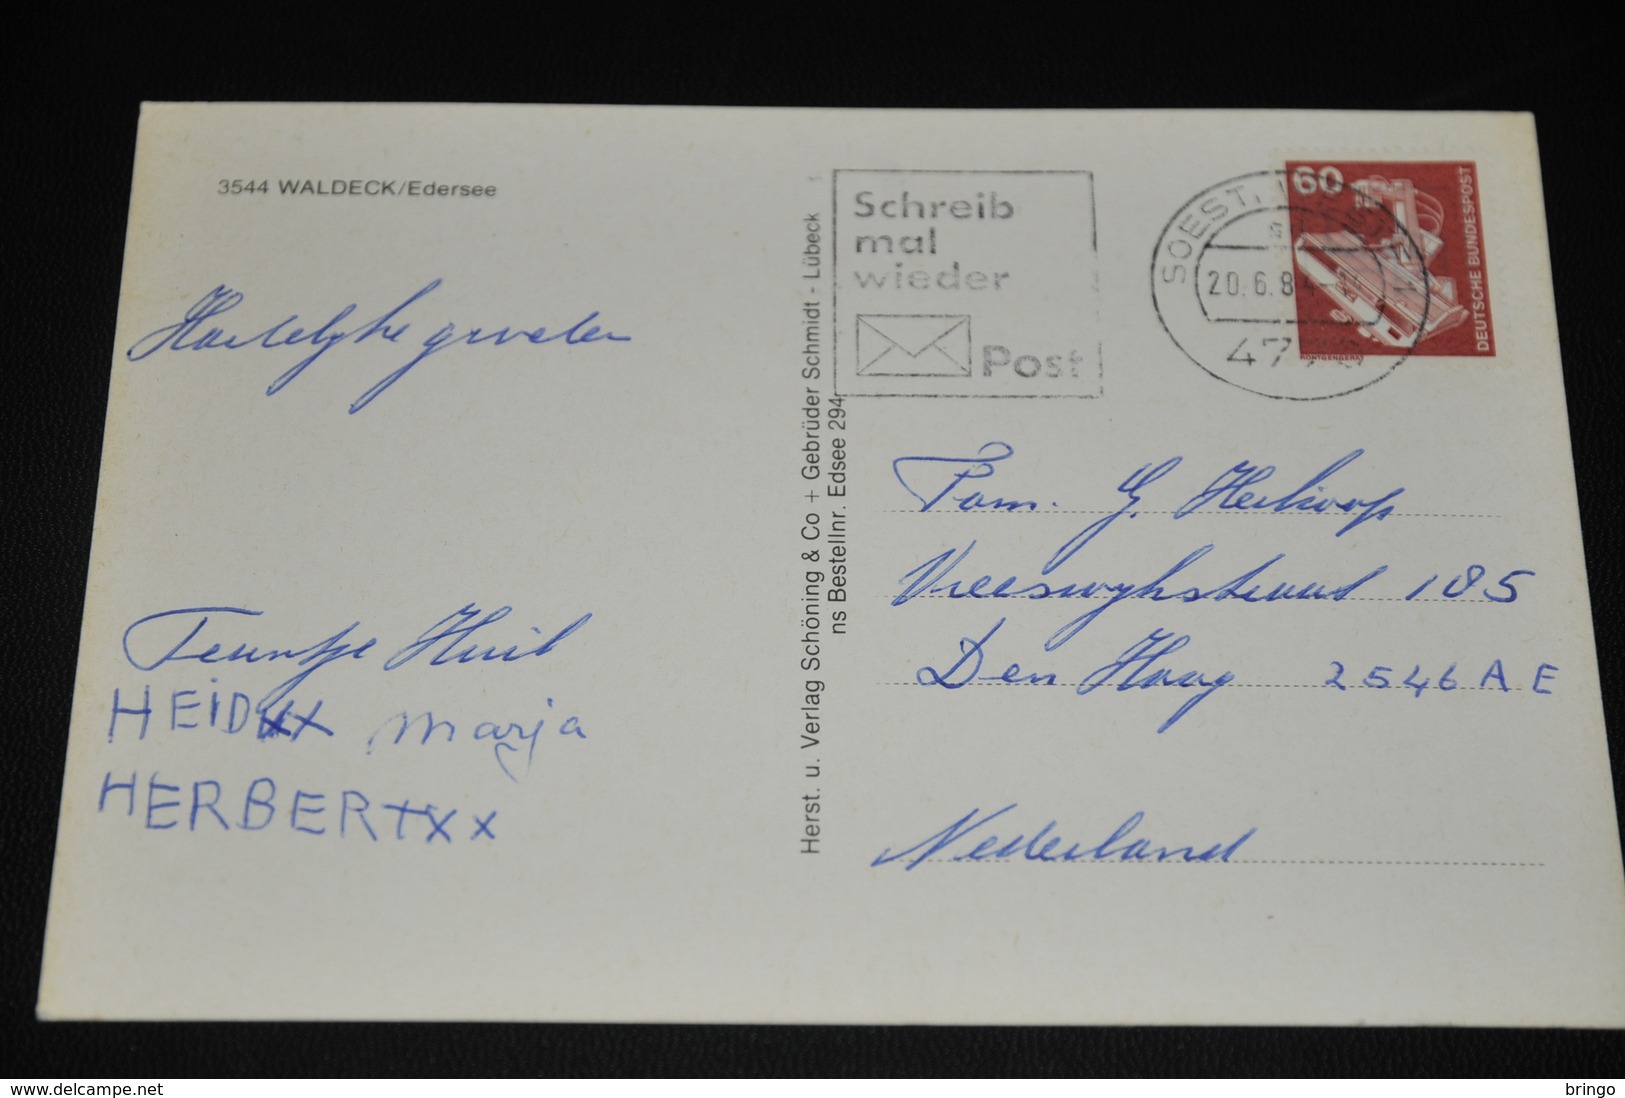 3544 WALDECK/Edersee
Hartelijke groeten
Teuntje Huib
HEIDXX marja
HERBERTXX
Herst. u. Verlag Schöning & Co + Gebrüder Schmidt - Lübeck
ns Bestellnr. Edsee 294
Schreib
mal
wieder
Post
SOEST,
20.6.84
60
DEUTSCHE BUNDESPOST
RÖNTGENGERÄT
Fam. G. Herkoop
Vreeswijkstraat 185
Den Haag 2546 AE
Nederland
delcampe.net
bringo